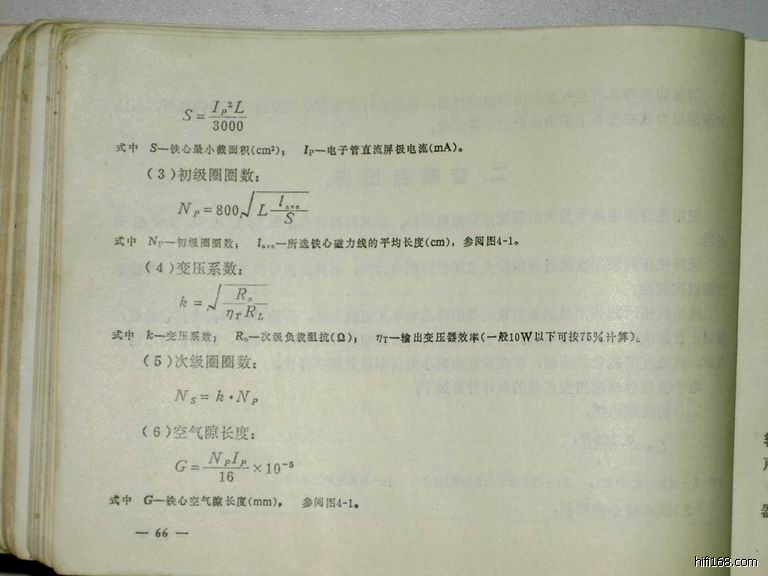 S=I_P²L/3000
式中 S—铁心最小截面积(cm²)； I_P—电子管直流屏极电流(mA)。
(3)初级圈圈数：
N_P=800√(L l_ave/S)
式中 N_P—初级圈圈数； l_ave—所选铁心磁力线的平均长度(cm)，参阅图4-1。
(4)变压系数：
k=√(R_o/η_T R_L)
式中 k—变压系数； R_o—次级负载阻抗(Ω)； η_T—输出变压器效率(一般10W以下可按75%计算)。
(5)次级圈圈数：
N_S=k·N_P
(6)空气隙长度：
G=N_P I_P/16×10⁻⁵
式中 G—铁心空气隙长度(mm)， 参阅图4-1。
— 66 —
器
hifi168.com